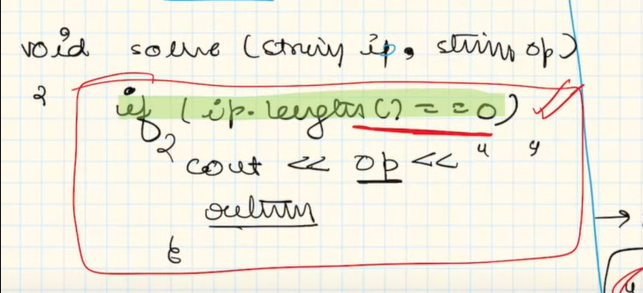 void solve (string ip, string op)
{
if (ip.length() == 0)
{
cout << op << " "
return
}